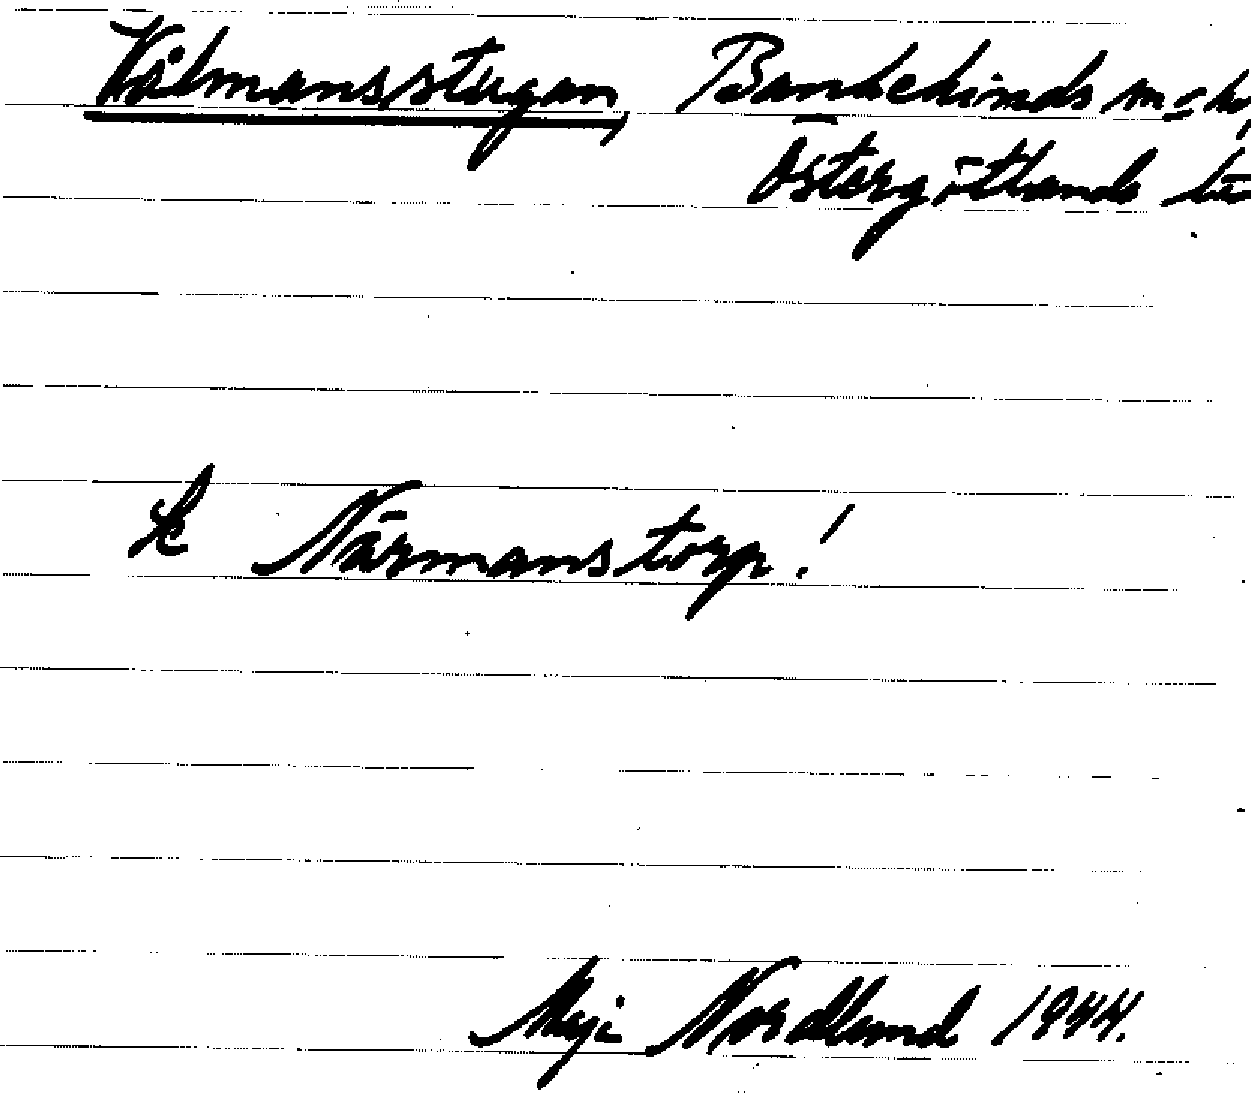 Vålmansstugan, Bankekinds sn o hd,
Östergötlands län
se Närmanstorp!
Maja Nordlund 1944.